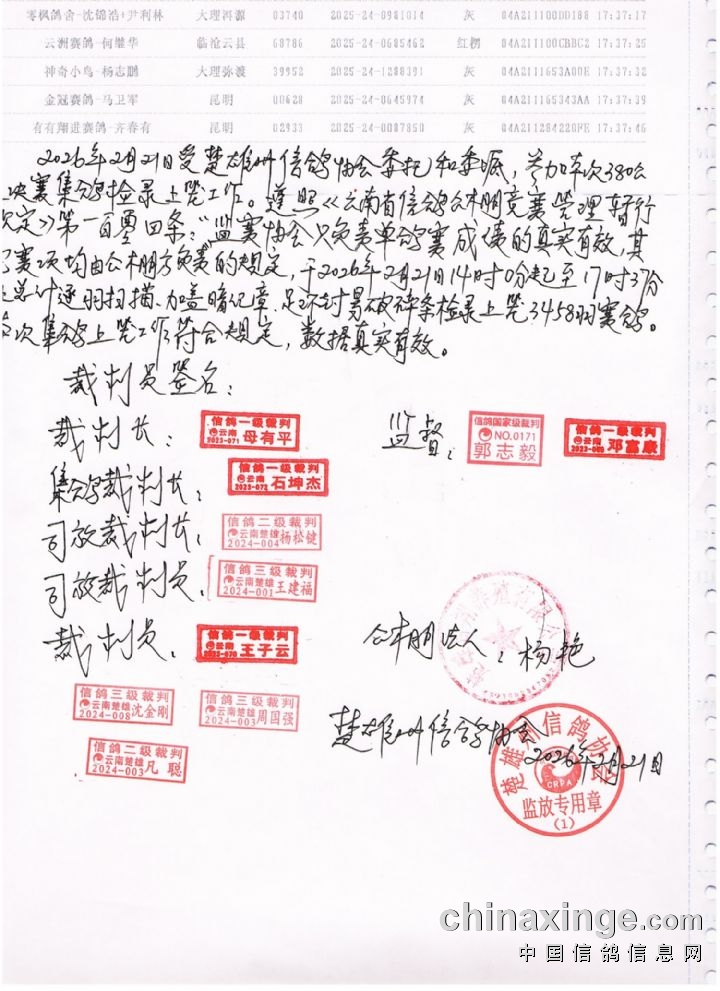 零枫鸽舍-沈锦浩+尹利林 大理洱源 03740 2025-24-0981014 灰 04A211100DD188 17:37:17
云洲赛鸽-何继华 临沧云县 68786 2025-24-0685462 红楞 04A211100CBBC2 17:37:25
神奇小鸟-杨志鹏 大理弥渡 39952 2025-24-1288391 灰 04A211653A00E 17:37:32
金冠赛鸽-马卫军 昆明 00628 2025-24-0645974 灰 04A211165343AA 17:37:39
有有翔进赛鸽-齐春有 昆明 02933 2025-24-0087850 灰 04A211284220FE 17:37:46
2026年2月21日受楚雄州信鸽协会委托和委派，参加本次380公
决赛集鸽检录上笼工作。遵照《云南省信鸽公棚竞赛管理暂行
定》第一百零四条："监赛协会只负责单鸽赛成绩的真实有效，其
赛项均由公棚方负责的规定，于2026年2月21日14时0分起至17时37分
总计逐羽扫描、加盖暗记章、足环封易破碎条检录上笼3458羽赛鸽。
次集鸽上笼工作符合规定，数据真实有效。
裁判员签名：
裁判长： 信鸽一级裁判 云南 2023-071 母有平
监督： 信鸽国家级裁判 NO.0171 郭志毅 信鸽一级裁判 云南 邓富康
集鸽裁判长： 信鸽一级裁判 云南 2023-072 石坤杰
司放裁判长： 信鸽二级裁判 云南楚雄 2024-004 杨松键
司放裁判员： 信鸽三级裁判 云南楚雄 2024-001 王建福
裁判员： 信鸽一级裁判 云南 2023-070 王子云
公棚法人：杨艳
信鸽三级裁判 云南楚雄 2024-008 沈金刚
信鸽三级裁判 云南楚雄 2024-003 周国强
信鸽二级裁判 云南楚雄 2024-003 凡聪
楚雄州信鸽协会
2026年2月21日
楚雄州信鸽协会
CRPA
监放专用章
(1)
chinaxinge.com
中国信鸽信息网